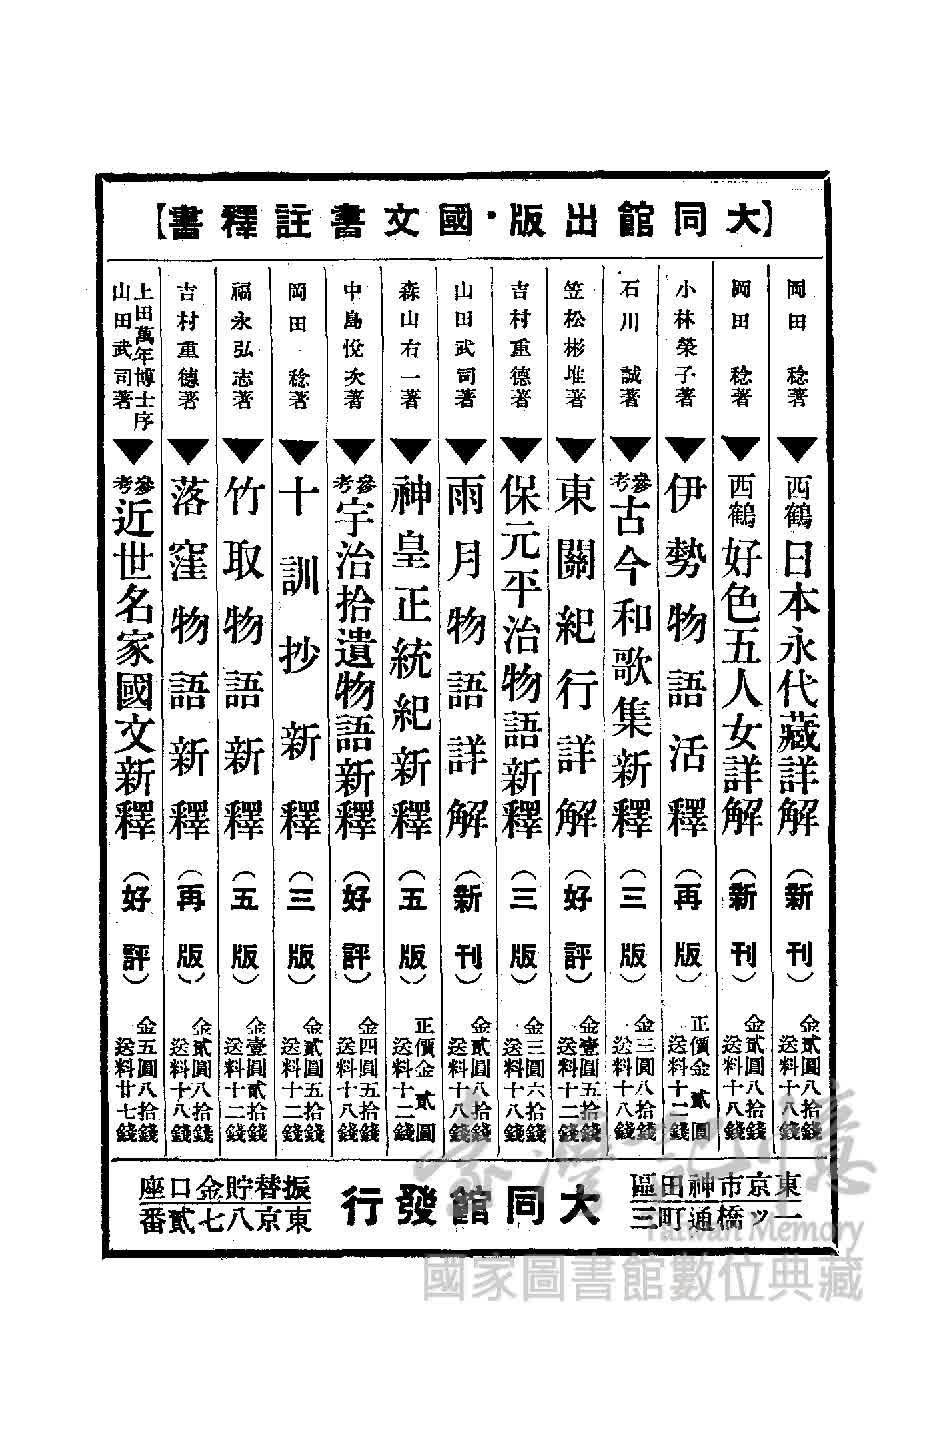 【大同館出版・國文書註釋書】
岡田稔著 西鶴日本永代藏詳解 （新刊） 金貳圓八拾錢 送料十八錢
岡田稔著 西鶴好色五人女詳解 （新刊） 金貳圓八拾錢 送料十八錢
小林榮子著 伊勢物語活釋 （再版） 正價金貳圓 送料十二錢
石川誠著 參考古今和歌集新釋 （三版） 金三圓八拾錢 送料十八錢
笠松彬雄著 東關紀行詳解 （好評） 金壹圓五拾錢 送料十二錢
吉村重德著 保元平治物語新釋 （三版） 金三圓六拾錢 送料十八錢
山田武司著 雨月物語詳解 （新刊） 金貳圓八拾錢 送料十八錢
森山右一著 神皇正統紀新釋 （五版） 正價金貳圓 送料十二錢
中島悅次著 參考宇治拾遺物語新釋 （好評） 金四圓五拾錢 送料十八錢
岡田稔著 十訓抄新釋 （三版） 金貳圓五拾錢 送料十二錢
福永弘志著 竹取物語新釋 （五版） 金壹圓貳拾錢 送料十二錢
吉村重德著 落窪物語新釋 （再版） 金貳圓八拾錢 送料十八錢
上田萬年博士序 山田武司著 參考近世名家國文新釋 （好評） 金五圓八拾錢 送料廿七錢
東京市神田區
一ッ橋通町三
大同館發行
振替貯金口座
東京八七貳番
臺灣記憶
Taiwan Memory
國家圖書館數位典藏